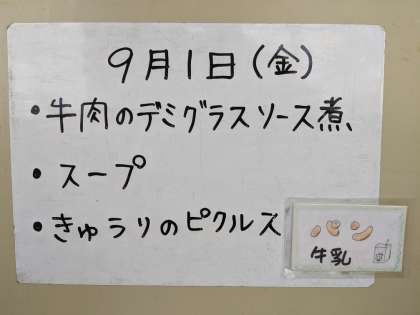 9月1日(金)
・牛肉のデミグラスソース煮
・スープ
・きゅうりのピクルス
パン
牛乳